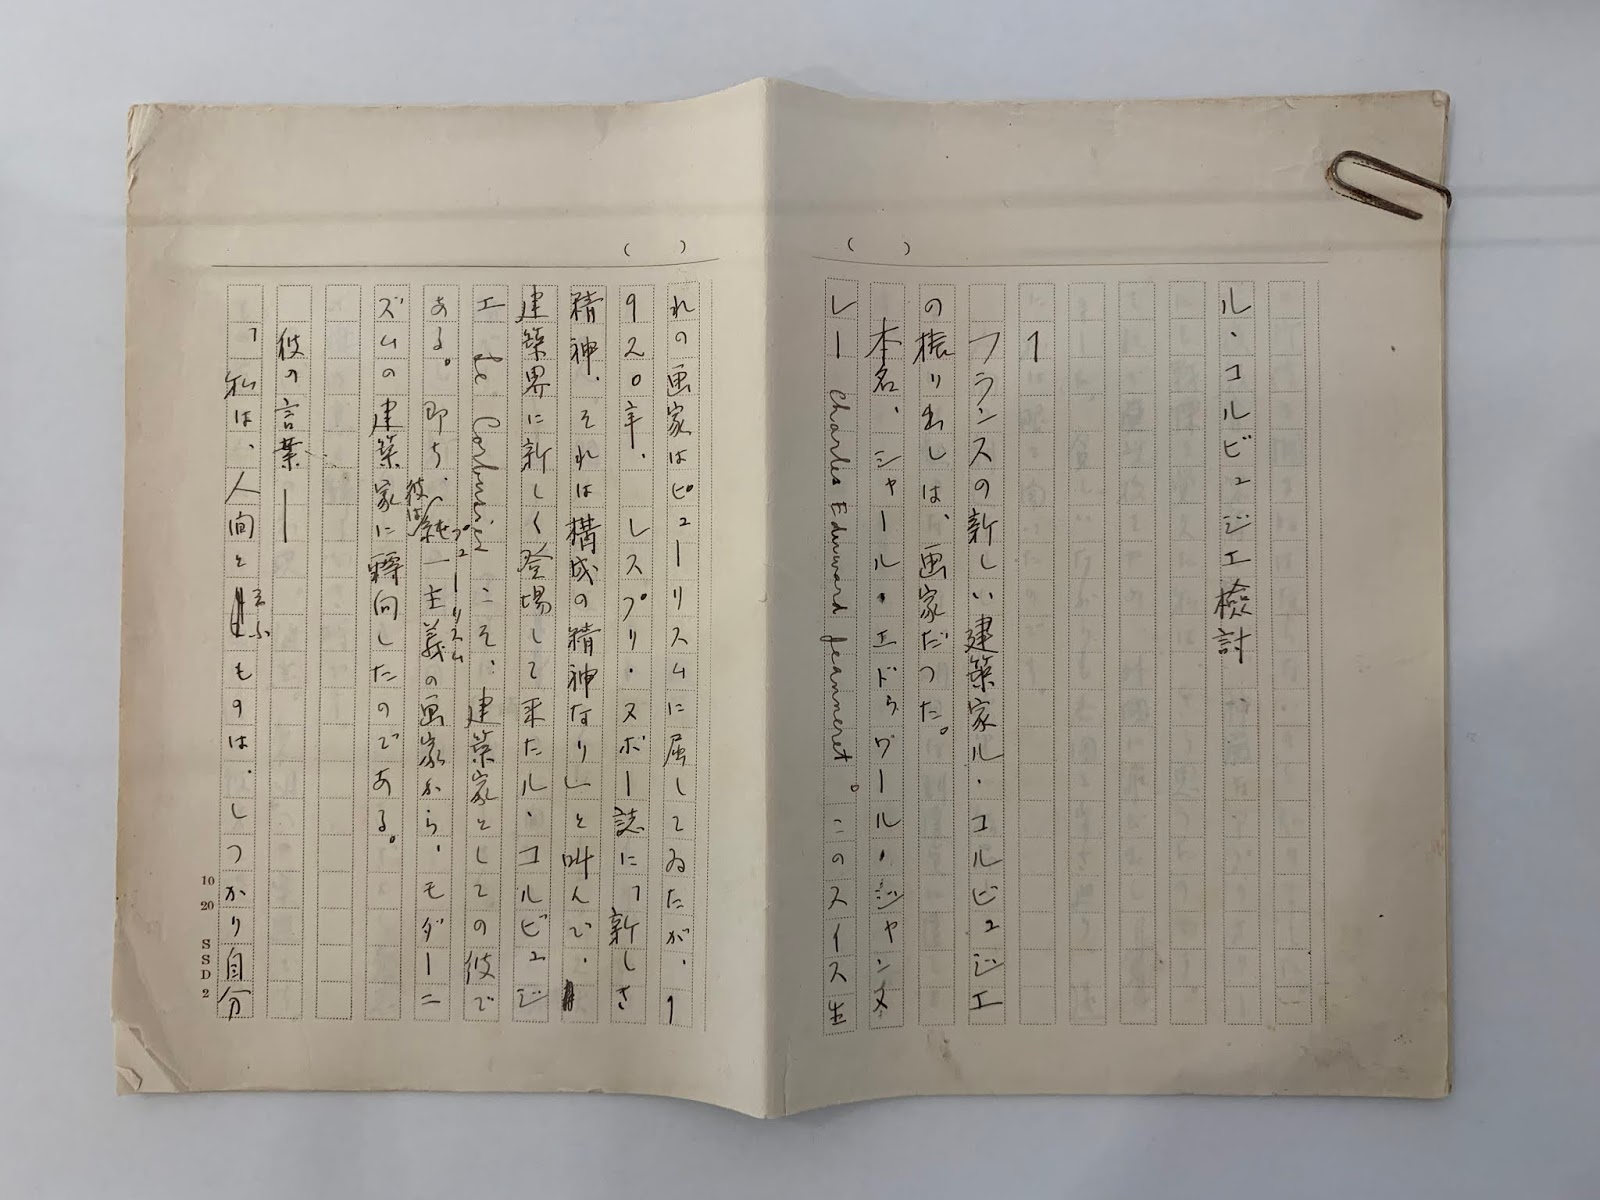 ( )
ル・コルビュジエ檢討
1
フランスの新しい建築家ル・コルビュジエ
の振り出しは、画家だつた。
本名、シャール・エドゥワール・ジャンヌ
レー Charles Edward Jeanneret。このスイス生
( )
れの画家はピューリスムに屈してゐたが、1
920年、レスプリ・ヌボー誌に「新しき
精神、それは構成の精神なり」と叫んで、
建築界に新しく登場して来たル・コルビュジ
エ Le Corbusier こそ、建築家としての彼で
ある。即ち、彼は純一主義の画家から、モダーニ
ピューリスム
ズムの建築家に轉向したのである。
彼の言葉——
「私は、人間と云ふものは、しつかり自分
10
20
SSD2